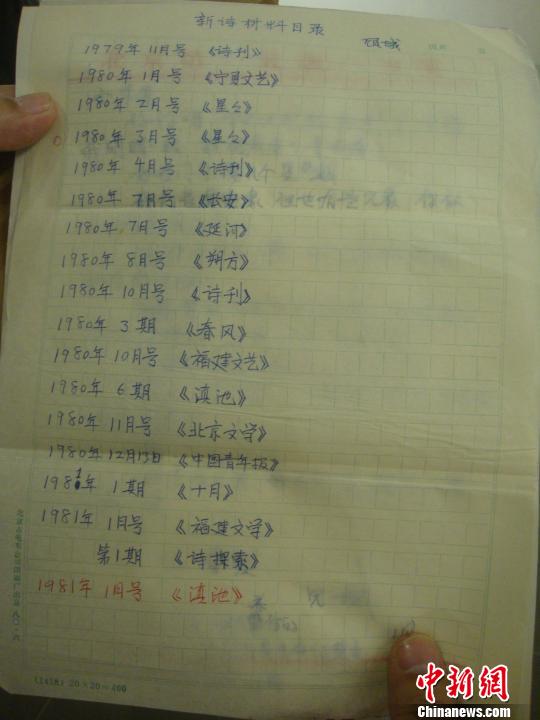 新诗材料目录
顾城
1979年11月号 《诗刊》
1980年1月号 《宁夏文艺》
1980年2月号 《星々》
1980年3月号 《星々》
1980年4月号 《诗刊》
1980年7月号 《长安》
1980年7月号 《延河》
1980年8月号 《朔方》
1980年10月号 《诗刊》
1980年3期 《春风》
1980年10月号 《福建文艺》
1980年6期 《滇池》
1980年11月号 《北京文学》
1980年12月13日 《中国青年报》
1981年1期 《十月》
1981年1月号 《福建文学》
第1期 《诗探索》
1981年1月号 《滇池》
20×20=400
中新网
Chinanews.com